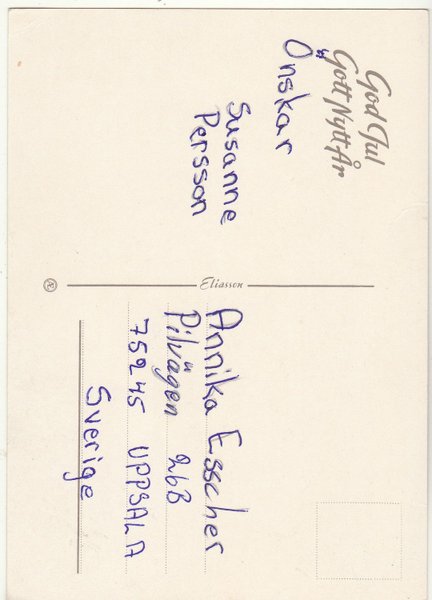 God Jul
Gott Nytt År
Önskar
Susanne
Persson
Eliasson
Annika Esscher
Pilvägen 26B
75245 UPPSALA
Sverige